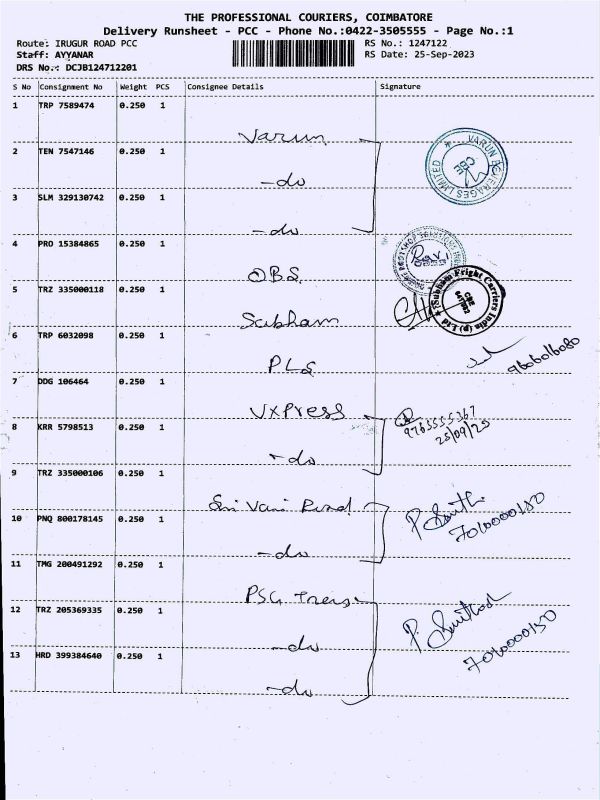 THE PROFESSIONAL COURIERS, COIMBATORE
Delivery Runsheet - PCC - Phone No.:0422-3505555 - Page No.:1
Route: IRUGUR ROAD PCC RS No.: 1247122
Staff: AYYANAR RS Date: 25-Sep-2023
DRS No.: DCJB124712201
S No Consignment No Weight PCS Consignee Details Signature
1 TRP 7589474 0.250 1 Varun
2 TEN 7547146 0.250 1 -do
VARUN BEVERAGES LIMITED
CBE
3 SLM 329130742 0.250 1 -do
4 PRO 15384865 0.250 1 OBS
Ravi
5 TRZ 335000118 0.250 1 Subham
Subham Fright Carriers India (p) Ltd
CBE
641062
6 TRP 6032098 0.250 1 PLS
9606016080
7 DDG 106464 0.250 1 VXPress
9765555367
25/09/23
8 KRR 5798513 0.250 1 -do
9 TRZ 335000106 0.250 1 Sri Vari
10 PNQ 800178145 0.250 1 -do
P.
7010000150
11 TMG 200491292 0.250 1 PSG
12 TRZ 205369335 0.250 1 -do
P.
7010000150
13 HRD 399384640 0.250 1 -do